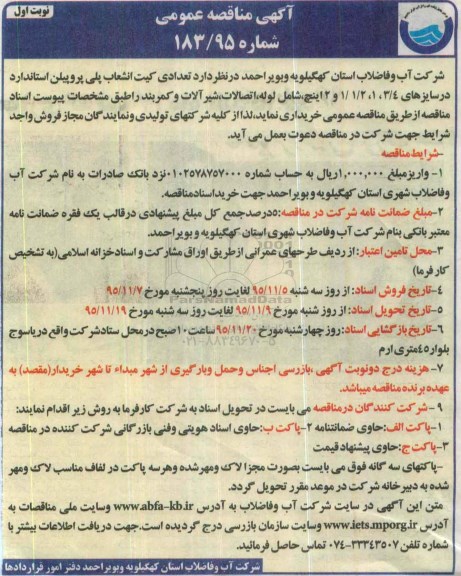 نوبت اول
آگهی مناقصه عمومی
شماره ۱۸۳/۹۵
شرکت آب وفاضلاب استان کهگیلویه وبویر احمد درنظر دارد تعدادی کیت انشعاب پلی پروپیلن استاندارد
درسایزهای ۳/٤، ۱، ۱/۲ ۱ و ۲ اینچ،شامل لوله،اتصالات،شیرآلات وکمربند راطبق مشخصات پیوست اسناد
مناقصه ازطریق مناقصه عمومی خریداری نماید،لذا از کلیه شرکتهای تولیدی ونمایندگان مجاز فروش واجد
شرایط جهت شرکت در مناقصه دعوت بعمل می آید.
-شرایط مناقصه
۱- واریزمبلغ ۱,۰۰۰,۰۰۰ریال به حساب شماره ۰۱۰۲۵۷۸۷۵۷۰۰۰نزد بانک صادرات به نام شرکت آب
وفاضلاب شهری استان کهگیلویه و بویراحمد جهت خریداسنادمناقصه.
۲-مبلغ ضمانت نامه شرکت در مناقصه:۵درصدجمع کل مبلغ پیشنهادی درقالب یک فقره ضمانت نامه
معتبربانکی بنام شرکت آب وفاضلاب شهری استان کهگیلویه و بویراحمد.
۳-محل تامین اعتبار: از ردیف طرحهای عمرانی ازطریق اوراق مشارکت و اسنادخزانه اسلامی(به تشخیص
کارفرما)
۴-تاریخ فروش اسناد: از روز سه شنبه ۹۵/۱۱/۵ لغایت روز پنجشنبه مورخ ۹۵/۱۱/۷
۵-تاریخ تحویل اسناد: از روز شنبه مورخ ۹۵/۱۱/۹ لغایت روز سه شنبه مورخ ۹۵/۱۱/۱۹
۶-تاریخ بازگشایی اسناد: روز چهارشنبه مورخ ۹۵/۱۱/۲۰ساعت ۱۰صبح درمحل ستادشرکت واقع دریاسوج
بلوار ۴۵متری ارم
۷- هزینه درج دونوبت آگهی ،بازرسی اجناس وحمل وبارگیری از شهر مبداء تا شهر خریدار(مقصد) به
عهده برنده مناقصه میباشد.
۹-شرکت کنندگان درمناقصه می بایست در تحویل اسناد به شرکت کارفرما به روش زیر اقدام نمایند:
۱-پاکت الف:حاوی ضمانتنامه ۲-پاکت ب:حاوی اسناد هویتی وفنی بازرگانی شرکت کننده در مناقصه
۳-پاکت ج:حاوی پیشنهاد قیمت
-پاکتهای سه گانه فوق می بایست بصورت مجزا لاک ومهرشده وهرسه پاکت در لفاف مناسب لاک ومهر
شده به دبیرخانه شرکت در موعد مقرر تحویل گردد.
متن این آگهی در سایت شرکت آب وفاضلاب به آدرس www.abfa-kb.ir وسایت ملی مناقصات به
آدرس www.iets.mporg.ir وسایت سازمان بازرسی درج گردیده است.جهت دریافت اطلاعات بیشتر با
شماره تلفن ۳۳۳۴۳۵۰۷-۰۷۴ تماس حاصل فرمائید.
شرکت آب وفاضلاب استان کهگیلویه وبویراحمد دفتر امور قراردادها